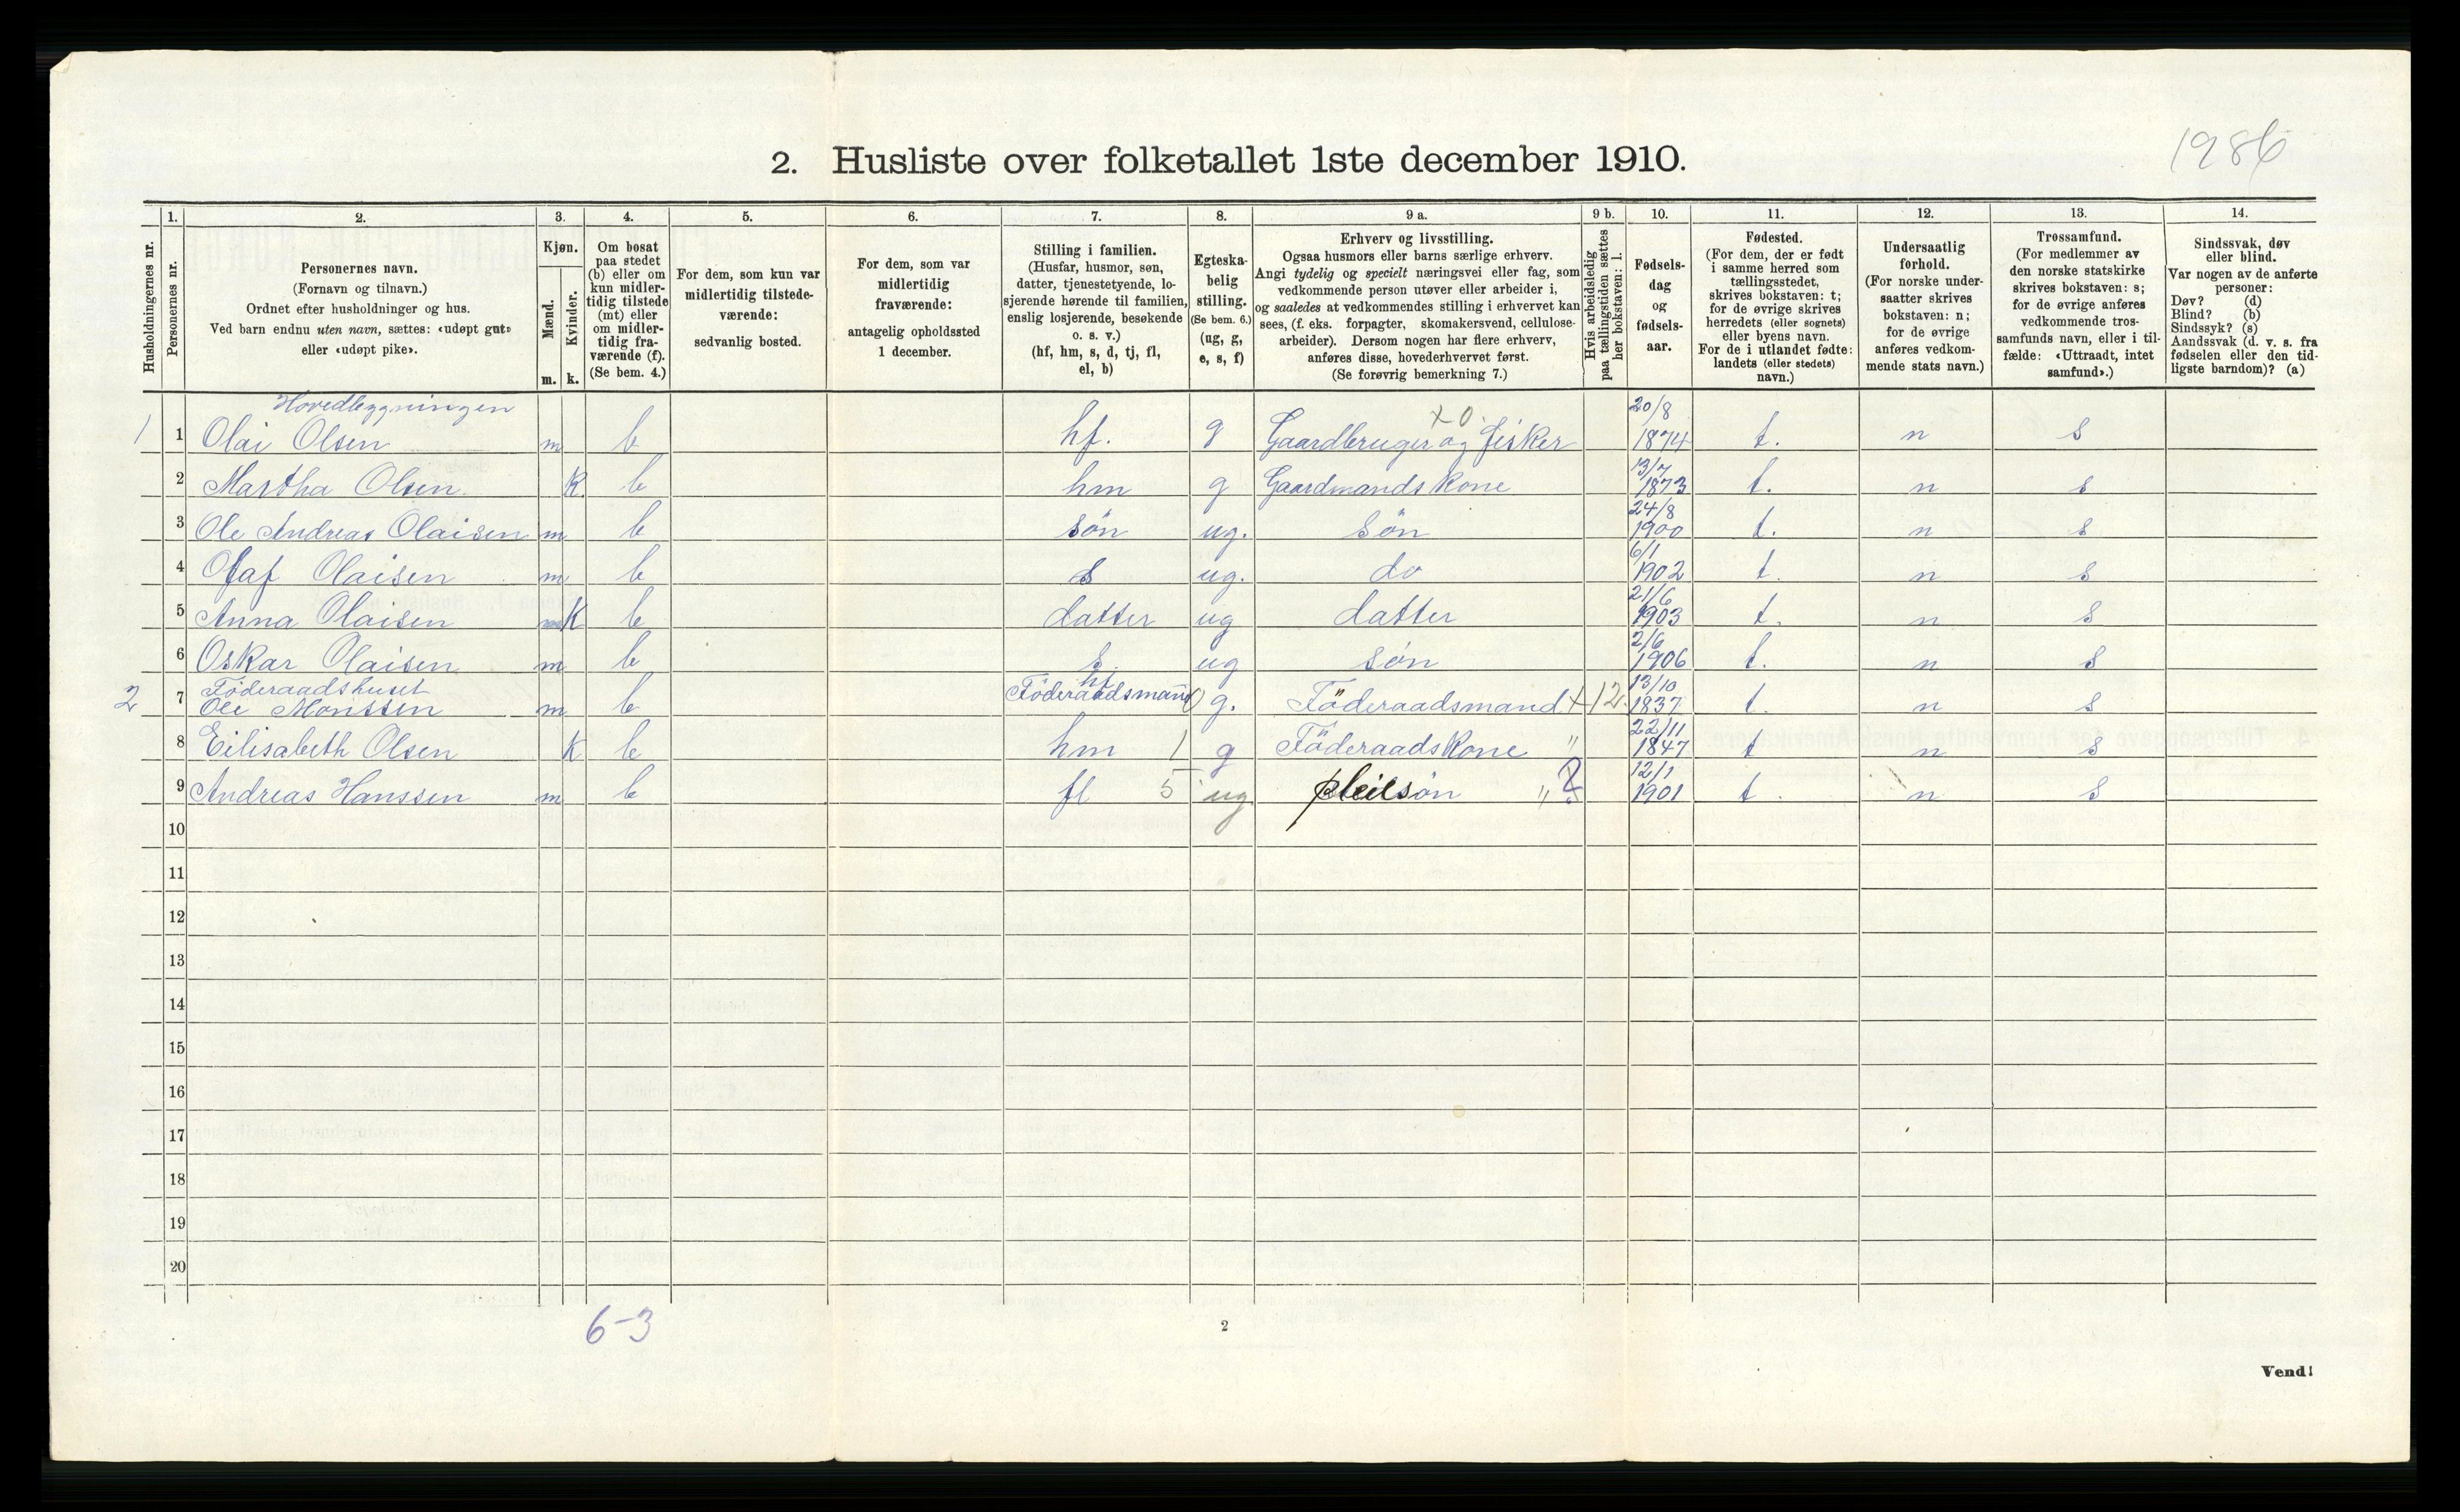 1986
2. Husliste over folketallet 1ste december 1910.
Husholdningernes nr.
1.
Personernes nr.
2.
Personernes navn.
(Fornavn og tilnavn.)
Ordnet efter husholdninger og hus.
Ved barn endnu uten navn, sættes: «udøpt gut»
eller «udøpt pike».
3.
Kjøn.
Mænd.
Kvinder.
m. k.
4.
Om bosat
paa stedet
(b) eller om
kun midler-
tidig tilstede
(mt) eller
om midler-
tidig fra-
værende (f).
(Se bem. 4.)
5.
For dem, som kun var
midlertidig tilstede-
værende:
sedvanlig bosted.
6.
For dem, som var
midlertidig
fraværende:
antagelig opholdssted
1 december.
7.
Stilling i familien.
(Husfar, husmor, søn,
datter, tjenestetyende, lo-
sjerende hørende til familien,
enslig losjerende, besøkende
o. s. v.)
(hf, hm, s, d, tj, fl,
el, b)
8.
Egteska-
belig
stilling.
(Se bem. 6.)
(ug, g,
e, s, f)
9 a.
Erhverv og livsstilling.
Ogsaa husmors eller barns særlige erhverv.
Angi tydelig og specielt næringsvei eller fag, som
vedkommende person utøver eller arbeider i,
og saaledes at vedkommendes stilling i erhvervet kan
sees, (f. eks. forpagter, skomakersvend, cellulose-
arbeider). Dersom nogen har flere erhverv,
anføres disse, hovederhvervet først.
(Se forøvrig bemerkning 7.)
9 b.
Hvis arbeidsledig
paa tællingstiden sættes
her bokstaven: l.
10.
Fødsels-
dag
og
fødsels-
aar.
11.
Fødested.
(For dem, der er født
i samme herred som
tællingsstedet,
skrives bokstaven: t;
for de øvrige skrives
herredets (eller sognets)
eller byens navn.
For de i utlandet fødte:
landets (eller stedets)
navn.)
12.
Undersaatlig
forhold.
(For norske under-
saatter skrives
bokstaven: n;
for de øvrige
anføres vedkom-
mende stats navn.)
13.
Trossamfund.
(For medlemmer av
den norske statskirke
skrives bokstaven: s;
for de øvrige anføres
vedkommende tros-
samfunds navn, eller i til-
fælde: «Uttraadt, intet
samfund».)
14.
Sindssvak, døv
eller blind.
Var nogen av de anførte
personer:
Døv? (d)
Blind? (b)
Sindssyk? (s)
Aandssvak (d. v. s. fra
fødselen eller den tid-
ligste barndom)? (a)
Hovedbygningen
1 1 Olai Olsen m b hf. g Gaardbruger og fisker x 0 20/8 1874 t. n s
2 Martha Olsen k b hm g Gaardmands kone 13/7 1873 t. n s
3 Ole Andreas Olaisen m b sön ug. sön 24/8 1900 t. n s
4 Olaf Olaisen m b s ug. do 6/1 1902 t. n s
5 Anna Olaisen k b datter ug datter 21/6 1903 t. n s
6 Oskar Olaisen m b s. ug sön 2/6 1906 t. n s
Föderaadshuset
2 7 Ole Monssen m b hf Föderaadsmand 0 g. Föderaadsmand x 12 13/10 1837 t. n s
8 Eilisabeth Olsen k b hm 1 g Föderaadskone " 22/11 1847 t n s
9 Andreas Hanssen m b fl 5 ug pleisön " 12/1 1901 t. n s
10
11
12
13
14
15
16
17
18
19
20
6-3
2
Vend!